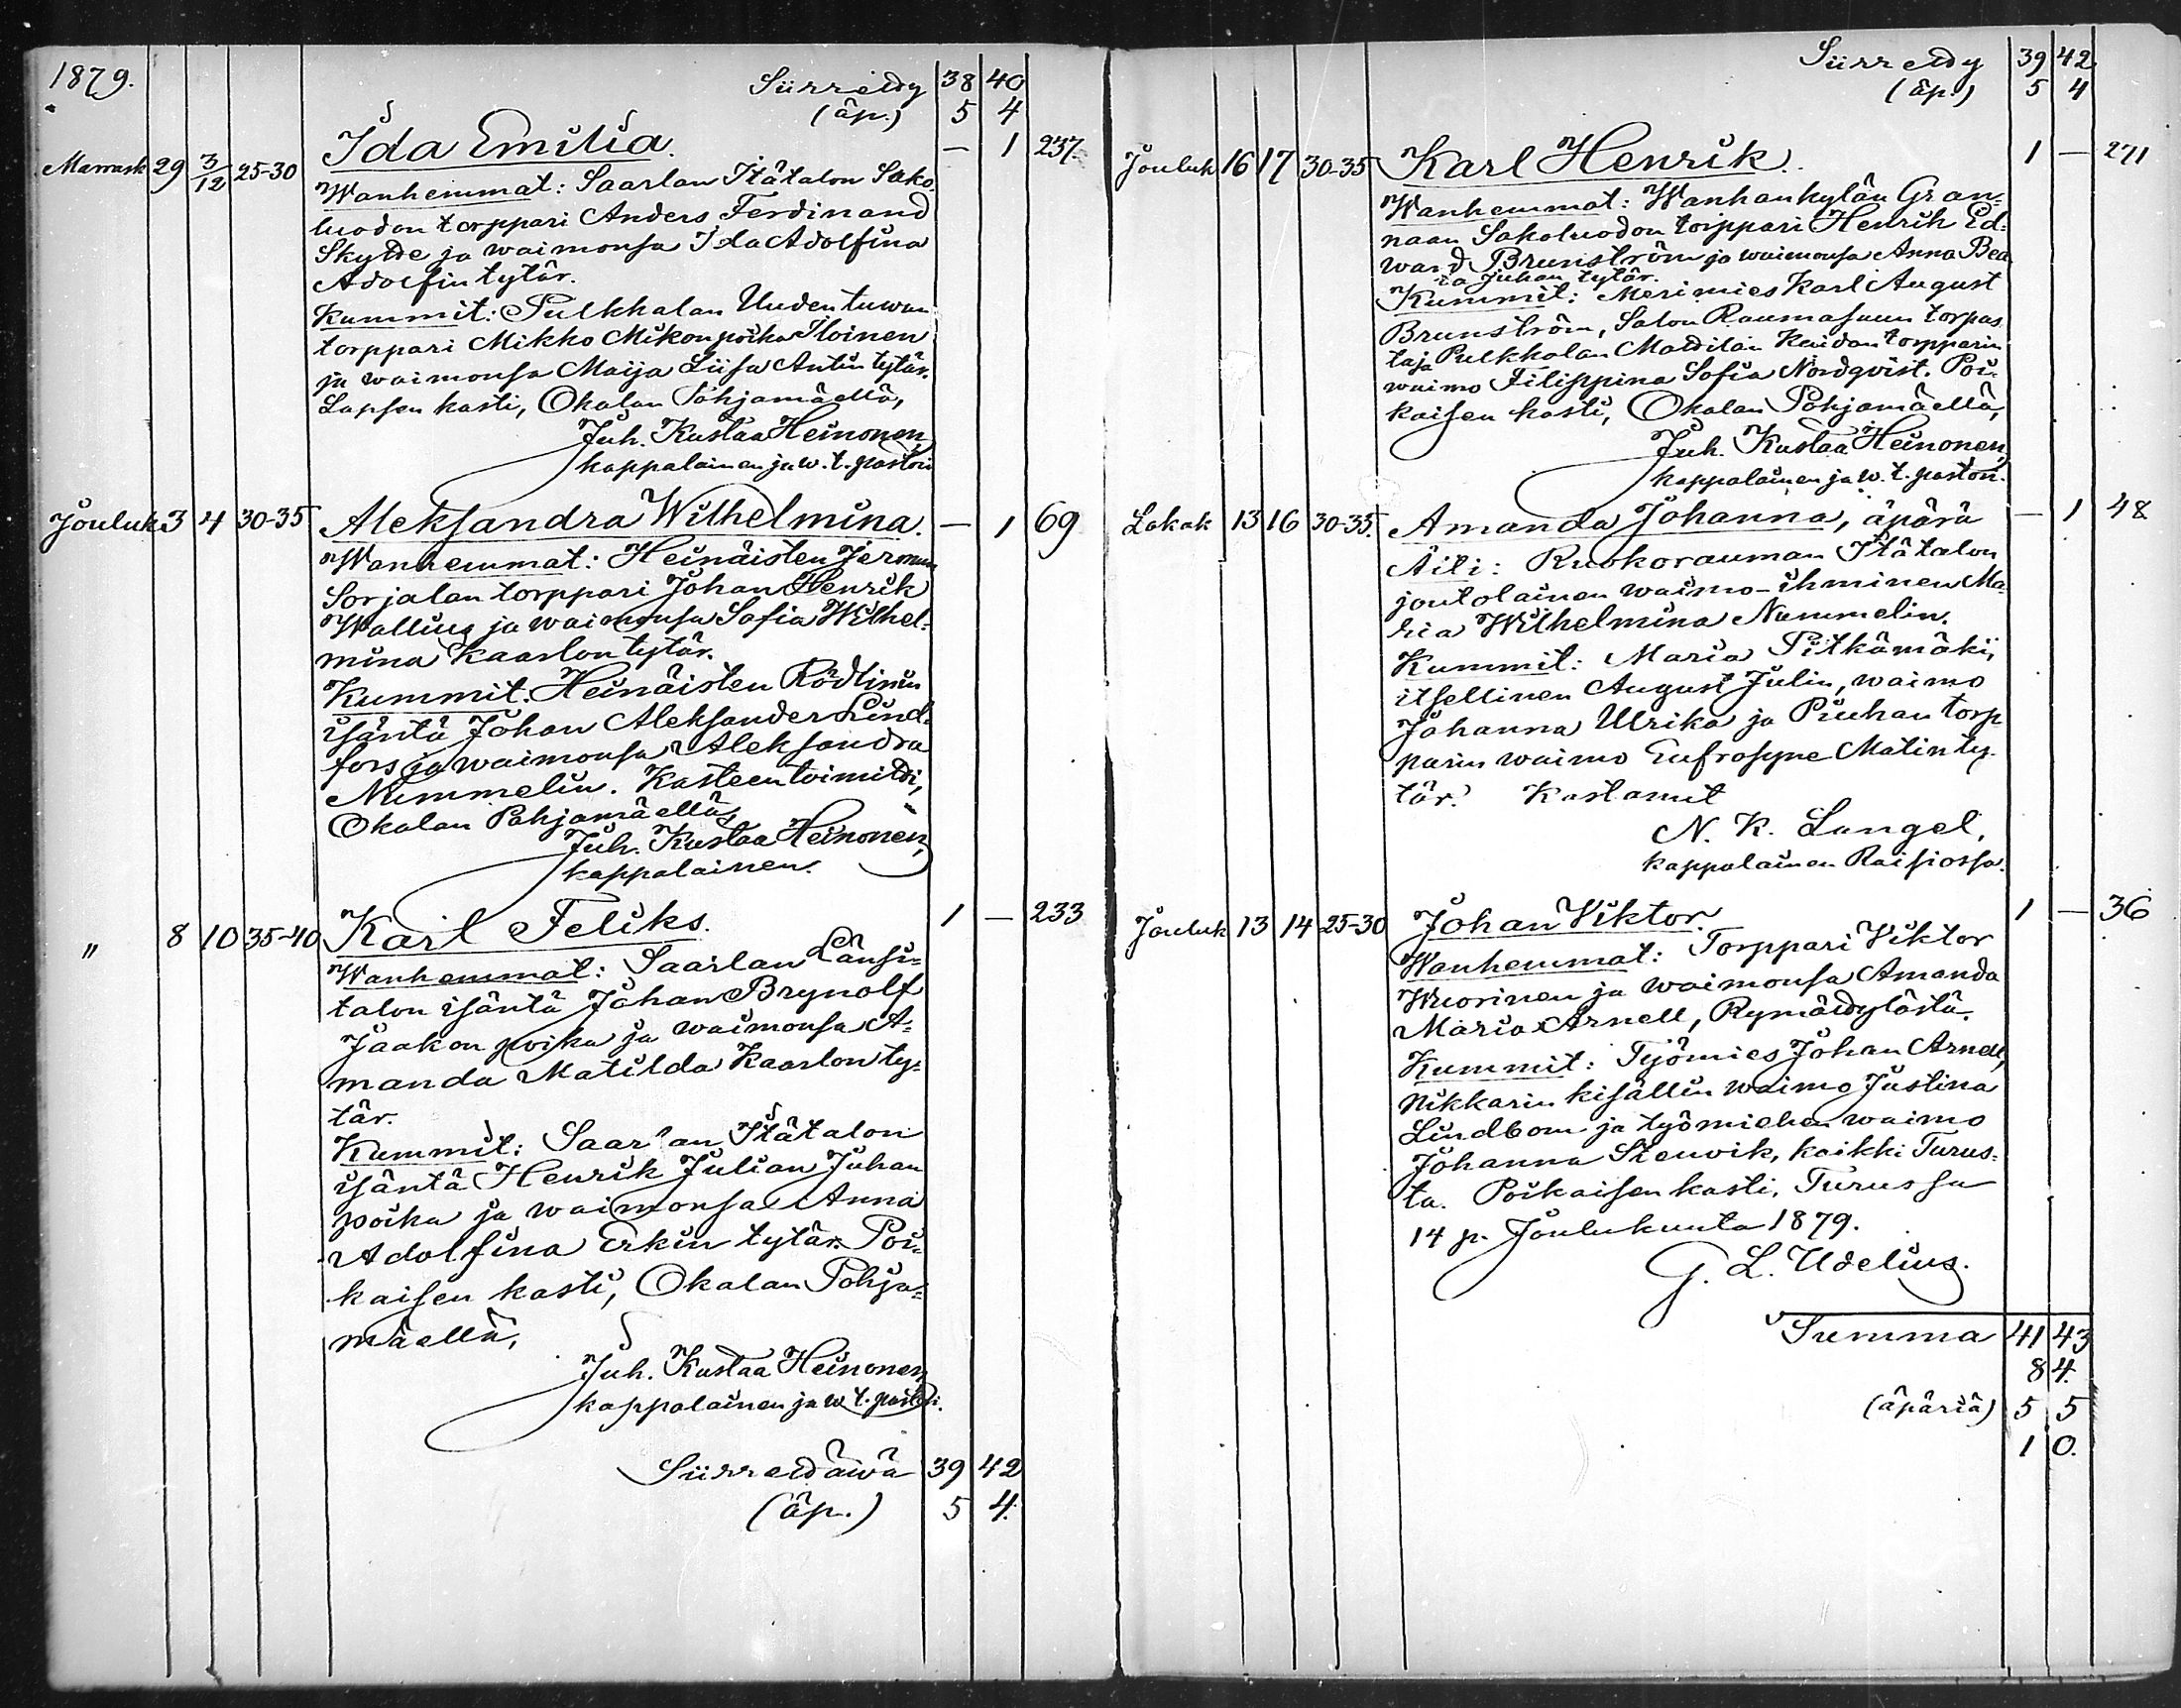 1879.
Siirretty 38 40
(äp.) 5 4
Marrask 29 3/12 25-30 Ida Emilia. — 1 237.
Wanhemmat: Saarlan Itätalon Sako-
luodon torppari Anders Ferdinand
Skytte ja waimonsa Ida Adolfina
Adolfin tytär.
Kummit: Pulkkalan Uudentuwan
torppari Mikko Mikonpoika Iloinen
ja waimonsa Maija Liisa Antin tytär.
Lapsen kasti, Okalan Pohjamäellä,
Juh. Kustaa Heinonen,
kappalainen ja w. t. pastori
Jouluk 3 4 30-35 Aleksandra Wilhelmina. — 1 69
Wanhemmat: Heinäisten
Sorjalan torppari Johan Henrik
Wallius ja waimonsa Sofia Wilhel-
mina Kaarlon tytär.
Kummit: Heinäisten
isäntä Johan Aleksander Lind-
fors ja waimonsa Aleksandra
Nummelin. Kasteen toimitti,
Okalan Pohjamäellä,
Juh. Kustaa Heinonen,
kappalainen.
" 8 10 35-40 Karl Feliks. 1 — 233
Wanhemmat: Saarlan Länsi-
talon isäntä Johan Brynolf
Jaakon poika ja waimonsa A-
manda Matilda Kaarlon ty-
tär.
Kummit: Saarlan Itätalon
isäntä Henrik Julian Juhan
poika ja waimonsa Anna
Adolfina Erkin tytär. Poi-
kaisen kasti, Okalan Pohja-
mäellä,
Juh. Kustaa Heinonen,
kappalainen ja w. t. pastori.
Siirrettäwä 39 42
(äp.) 5 4.
Siirretty 39 42
(äp.) 5 4
Jouluk 16 17 30-35 Karl Henrik. 1 — 271
Wanhemmat: Wanhankylän Gran-
naan Sakoluodon torppari Henrik Ed-
ward Brunström ja waimonsa Anna Bea
ta Juhan tytär.
Kummit: Merimies Karl August
Brunström, Salon Raumasuun torpas
taja Pulkkalan Mattilan Kaidan torpparin
waimo Filippina Sofia Nordqvist. Poi-
kaisen kasti, Okalan Pohjamäellä,
Juh. Kustaa Heinonen,
kappalainen ja w. t. pastori.
Lokak 13 16 30-35. Amanda Johanna, äpärä — 1 48
Äiti: Ruokorauman Itätalon
joutolainen waimo-ihminen Ma-
ria Wilhelmina Nummelin.
Kummit: Maria Pitkämäki,
itsellinen August Julin, waimo
Johanna Ulrika ja Piuhan torp
parin waimo Eufrosyne Matin ty-
tär. Kastanut
N. K. Langel,
kappalainen Raisiossa.
Jouluk 13 14 25-30 Johan Viktor. 1 — 36
Wanhemmat: Torppari Viktor
Wuorinen ja waimonsa Amanda
Maria Arnell, Rymättylästä.
Kummit: Työmies Johan Arnell,
Nikkarin kisällin waimo Justina
Lindbom ja työmiehen waimo
Johanna Stenvik, kaikki Turus-
ta. Poikaisen kasti, Turussa
14 p. Joulukuuta 1879.
G. L. Udelius.
Summa 41 43
84.
(äpäriä) 5 5
10.